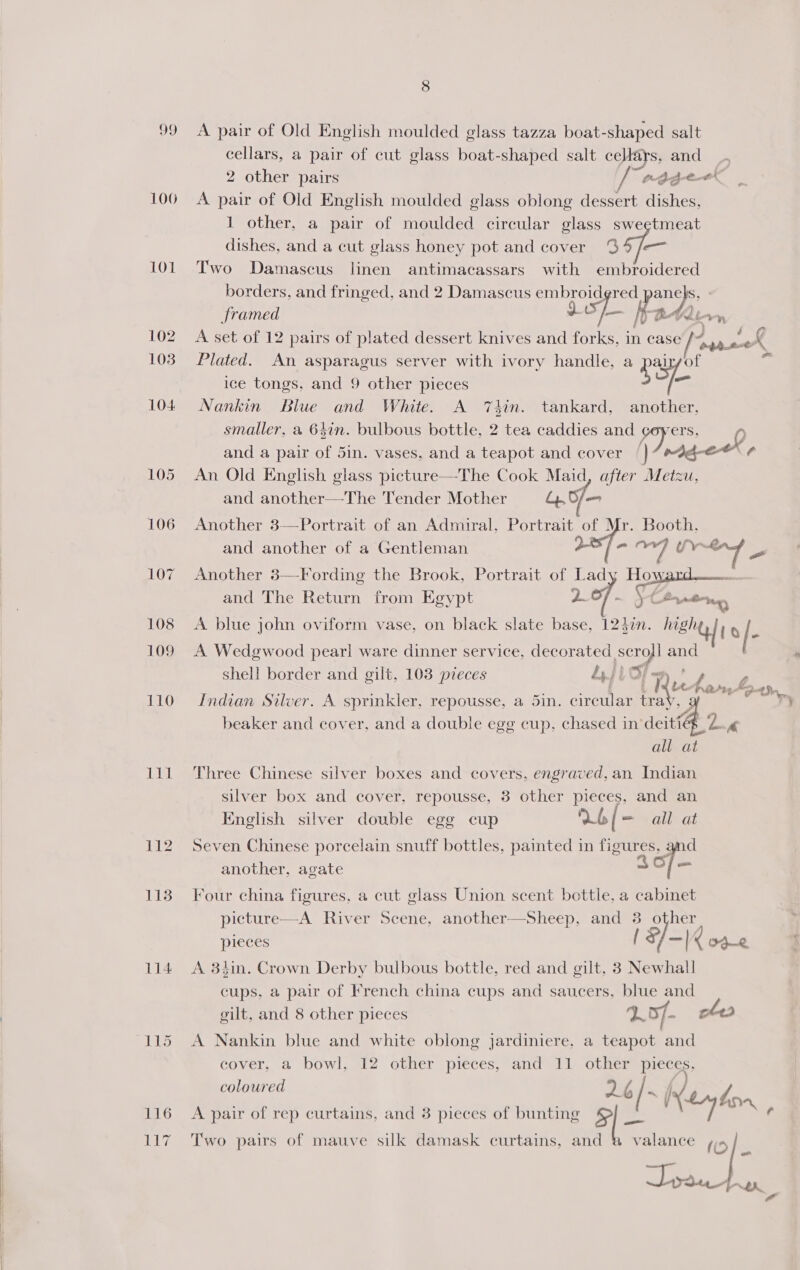 8
99 A pair of Old English moulded glass tazza boat-shaped salt
cellars, a pair of cut glass boat-shaped salt cellars, and
2 other pairs
100 A pair of Old English moulded glass oblong dessert dishes,
1 other, a pair of moulded circular glass sweetmeat
dishes, and a cut glass honey pot and cover 35/-
101 Two Damascus linen antimacassars with embroidered
borders, and fringed, and 2 Damascus embroidered panels,
framed
102 A set of 12 pairs of plated dessert knives and forks, in case
103 Plated. An asparagus server with ivory handle, a pair of
ice tongs, and 9 other pieces
104 Nankin Blue and White. A 7½in. tankard, another,
smaller, a 6½in. bulbous bottle, 2 tea caddies and covers,
and a pair of 5in. vases, and a teapot and cover
105 An Old English glass picture—The Cook Maid, after Metzu,
and another—The Tender Mother
106 Another 3—Portrait of an Admiral, Portrait of Mr. Booth,
and another of a Gentleman
107 Another 3—Fording the Brook, Portrait of Lady Howard
and The Return from Egypt
108 A blue john oviform vase, on black slate base, 12½in. high
109 A Wedgwood pearl ware dinner service, decorated scroll and
shell border and gilt, 103 pieces
110 Indian Silver. A sprinkler, repousse, a 5in. circular tray, a
beaker and cover, and a double egg cup, chased in deities
all at
111 Three Chinese silver boxes and covers, engraved, an Indian
silver box and cover, repousse, 3 other pieces, and an
English silver double egg cup 26/- all at
112 Seven Chinese porcelain snuff bottles, painted in figures, and
another, agate 30/-
113 Four china figures, a cut glass Union scent bottle, a cabinet
picture—A River Scene, another—Sheep, and 3 other
pieces 18/-
114 A 3½in. Crown Derby bulbous bottle, red and gilt, 3 Newhall
cups, a pair of French china cups and saucers, blue and
gilt, and 8 other pieces
115 A Nankin blue and white oblong jardiniere, a teapot and
cover, a bowl, 12 other pieces, and 11 other pieces,
coloured 26/-
116 A pair of rep curtains, and 3 pieces of bunting
117 Two pairs of mauve silk damask curtains, and a valance